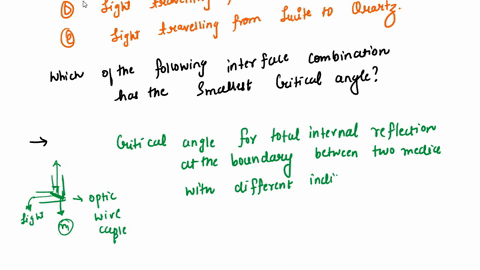 (D) Light travelling
(E) Light travelling from Lucite to Quartz.
Which of the following interface combination
has the Smallest Critical angle?
→ Critical angle for total internal reflection
at the boundary between two media
with different indi
→ optic
wire
cuple
light
n₁